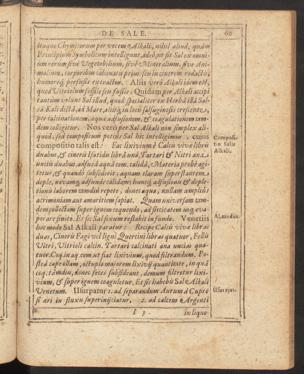 DE SALE. 60
teaque Chymicorum per vocem Alkali, nihil aliud, quàm
Principium Symbolicum intelligunt, adeò per se Salem omni-
um rerum sivè Vegetabilium, sivè Mineralium, sive Ani-
malium, corporibus calcinatis prius seu in cinerem redactis
humore, perfectè extractum. Aliis verò Alkali idem est,
quod Vitriolum fossile seu fusile. Quidam per Alkali accipi
tantùm volunt Sal illud, quod specialiter ex Herbâ illâ Sal-
sâ Kali dictâ ad Mare, aliisq; in locis salsuginosis crescente,
per calcinationem, aquæ adfusionem, & coagulationem tan-
dem colligitur. Nos verò per Sal Alkali non simplex ali-
quod, sed compositum potiùs Sal hîc intelligimus: cuius
compositio talis est: Fac lixivium è Calcis vivæ libris
duabus, & cineris
untiis duabus, adfusâ aquâ tem. calidâ, Materia probè agi-
tetur, & quandò subsiderit, aquam claram superstantem
deple, novamq; adfunde calidam; humcq; adfusionis & deple-
tionis laborem tamdiù repete, donec aqua, nullam ampliùs
acrimoniam aut amaritiem sapiat. Quam universam tan-
dem collectam super ignem coquendo, ad siccitatem usq; eva-
porare sinito. Et sic Sal suum restabit in fundo. Venetiis
hoc modo Sal Alkali paratur: Recipe Calcis vivæ libras
duas, Cineris Fagi vel ligni Quercini libras quatuor, Fellis
Vitri, Vitrioli calcin. Tartari calcinati ana uncias qua-
tuor. Coq; in aq. com. ut fiat lixivium, quod filtrandum. Po-
stea
coq; tamdiu, donec feces subsidant, demum filtretur lixi-
vium, & super ignem coaguletur. Et sic habebis Sal Alkali
Venetum. Usurpatur 1. ad separandum Aurum à Cupro
si ari in fluxu superinjiciatur, 2. ad calcem Argenti
I 3 in liquo-
Composi-
tio Salis
Alkali.